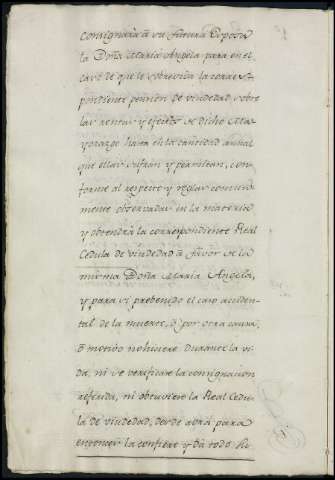 consignará á su futura Esposa
la Doña María Angela para en el
caso de que le sobreviva la corres-
pondiente pension de viudedad sobre
las rentas y efectos de dicho Ma-
yorazgo hasta en la cantidad anual
que ellas sufran y permitan, con-
forme al respeto y reglas comun-
mente observadas en la materia
y obtendrá la correspondiente Real
Cedula de viudedad á favor de la
misma Doña María Angela,
y para si prebenido el caso acciden-
tal de la muerte, ó por otra causa,
ó motivo no hiciere durante la vi-
da, ni se verificare la consignacion
referida, ni obtuviere la Real Cedu-
la de viudedad, desde ahora para
entonces la confiere y dá todo Po-